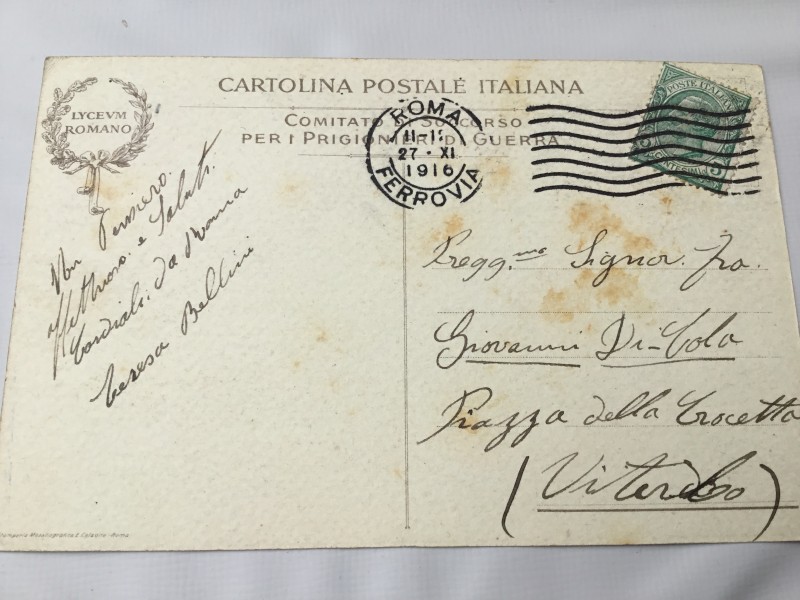 LYCEVM
ROMANO
CARTOLINA POSTALE ITALIANA
COMITATO DI SOCCORSO
PER I PRIGIONIERI DI GUERRA
ROMA
27 · XI
1916
FERROVIA
POSTE ITALIANE
CENTESIMI 5
Un Pensiero.
Affettuoso. e Saluti.
Cordiali. da Roma
Teresa Bellini
Pregg.mo Signor.
Giovanni Di-Cola
Piazza della Crocetta
(Viterbo)
Roma